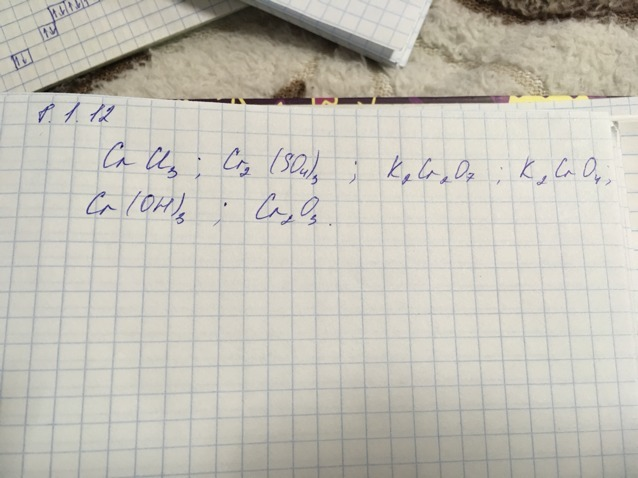 8.1.12
CrCl₃; Cr₂(SO₄)₃; K₂Cr₂O₇; K₂CrO₄,
Cr(OH)₃; Cr₂O₃.